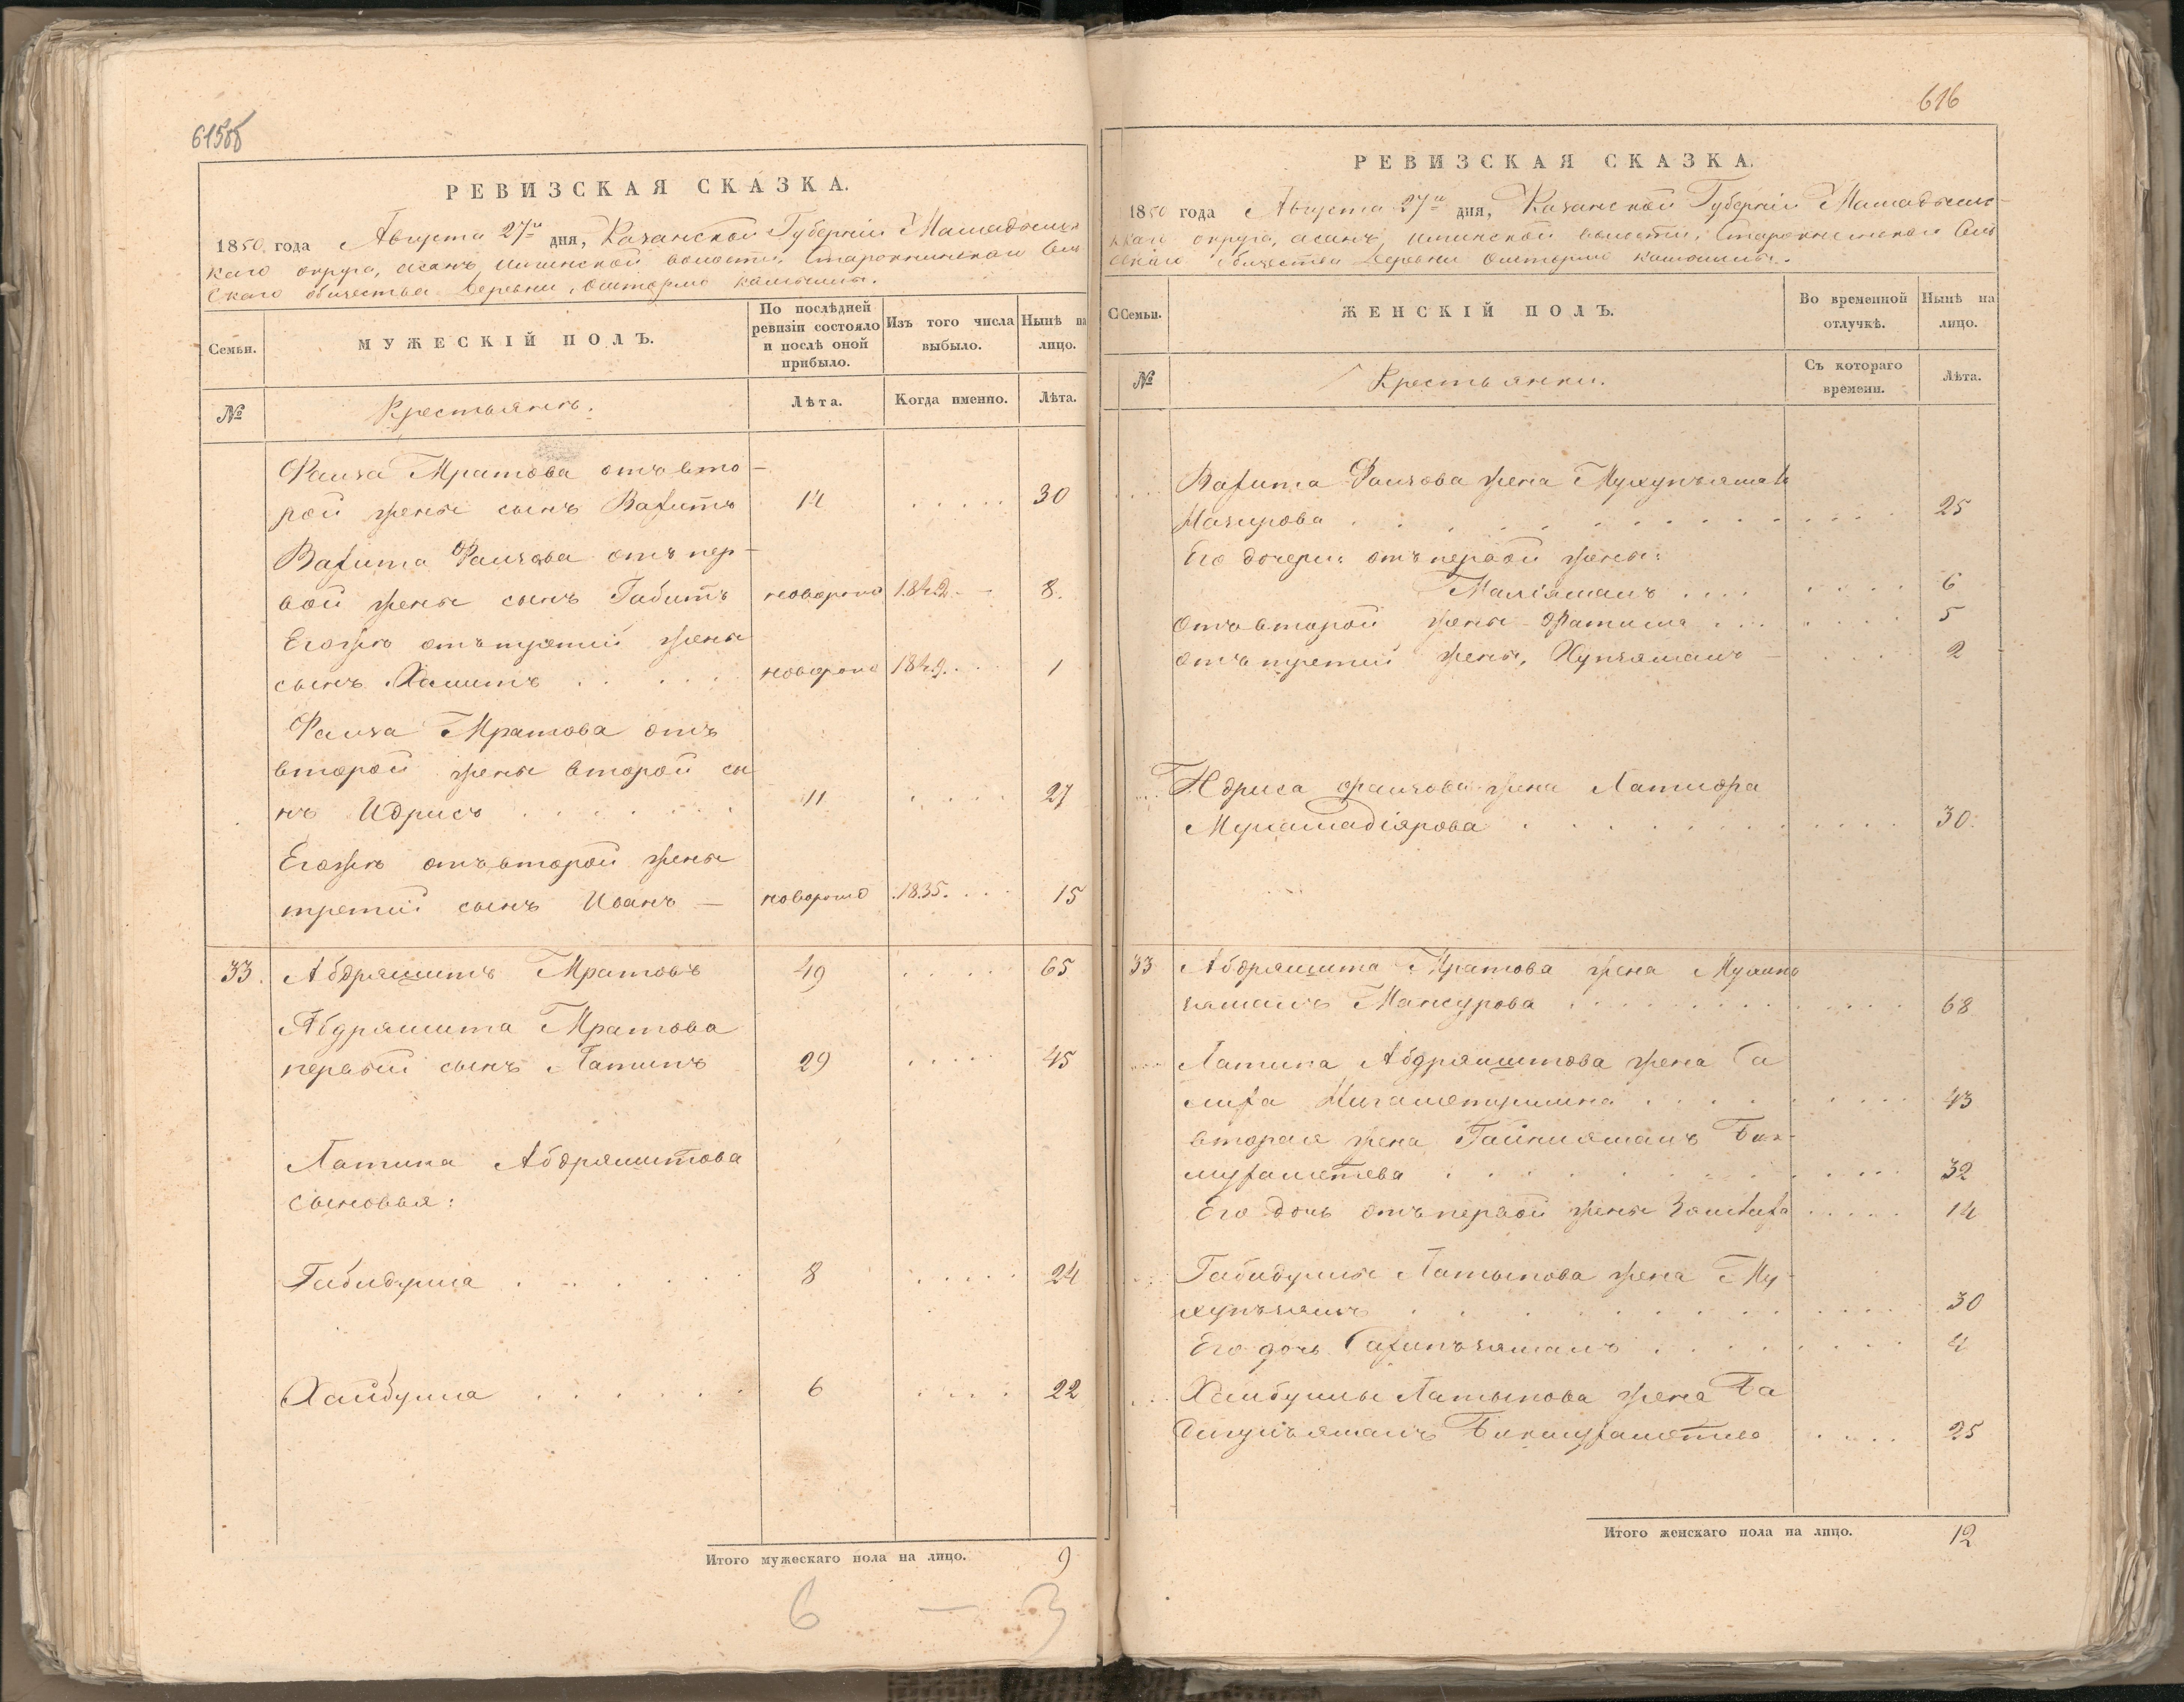 615об
РЕВИЗСКАЯ СКАЗКА.
1850 года Августа 27го дня, Казанской Губерніи Мамадышс
каго округа, волости,
скаго общества деревни
Семьи.
МУЖЕСКІЙ ПОЛЪ.
По послѣдней ревизіи состояло и послѣ оной прибыло.
Изъ того числа выбыло.
Нынѣ на лицо.
№
Крестьянъ.
Лѣта.
Когда именно.
Лѣта.
Фаиза Мратова отъ вто-
рой жены сынъ Вагитъ 14 . . . . . 30
Вагита Фаизова отъ пер-
вой жены сынъ Габитъ новорож 1842 8.
Егожъ отъ третій жены
сынъ Хамитъ . . . . . новорож 1849. 1
Фаиза Мратова отъ
второй жены второй сы
нъ Идрисъ . . . . . . 11 . . . . . 27
Егожъ отъ второй жены
третій сынъ новорож 1835. 15
33. Абдряшитъ Мратовъ 49 . . . . . 65
Абдряшита Мратова
первый сынъ Латипъ 29 . . . . . 45
Латипа Абдряшитова
сыновья:
Габидулла . . . . . . 8 . . . . . 24
Хайбулла . . . . . . 6 . . . . 22
Итого мужескаго пола на лицо. 9
6 — 3
616
РЕВИЗСКАЯ СКАЗКА.
1850 года Августа 27го дня, Казанской Губерніи Мамадышс-
каго округа, волости,
скаго общества деревни
Семьи.
ЖЕНСКІЙ ПОЛЪ.
Во временной отлучкѣ.
Нынѣ на лицо.
№
Крестьянки.
Съ котораго времени.
Лѣта.
Вагита Фаизова жена
. . . . . . . . . 25
Его дочери: отъ первой жены:
. . . . 6
отъ второй жены Фатима . . . 5
отъ третій жены, 2
Идриса Фаизова жена Латифа
. . . . . . . . 30.
33 Абдряшита Мратова жена
Мансурова . . . . . . . . 68
Латипа Абдряшитова жена Га
лифа . . . . . 43
вторая жена Бик-
муфаметева . . . . . . . . 32
Его дочь отъ первой жены . . . . . 14
Габидуллы Латыпова жена Му-
. . . . . . . . . 30
Его дочь . . . . . . 4
Хайбуллы Латыпова жена Ба
Бикмуфаметева . . . . 25
Итого женскаго пола на лицо. 12